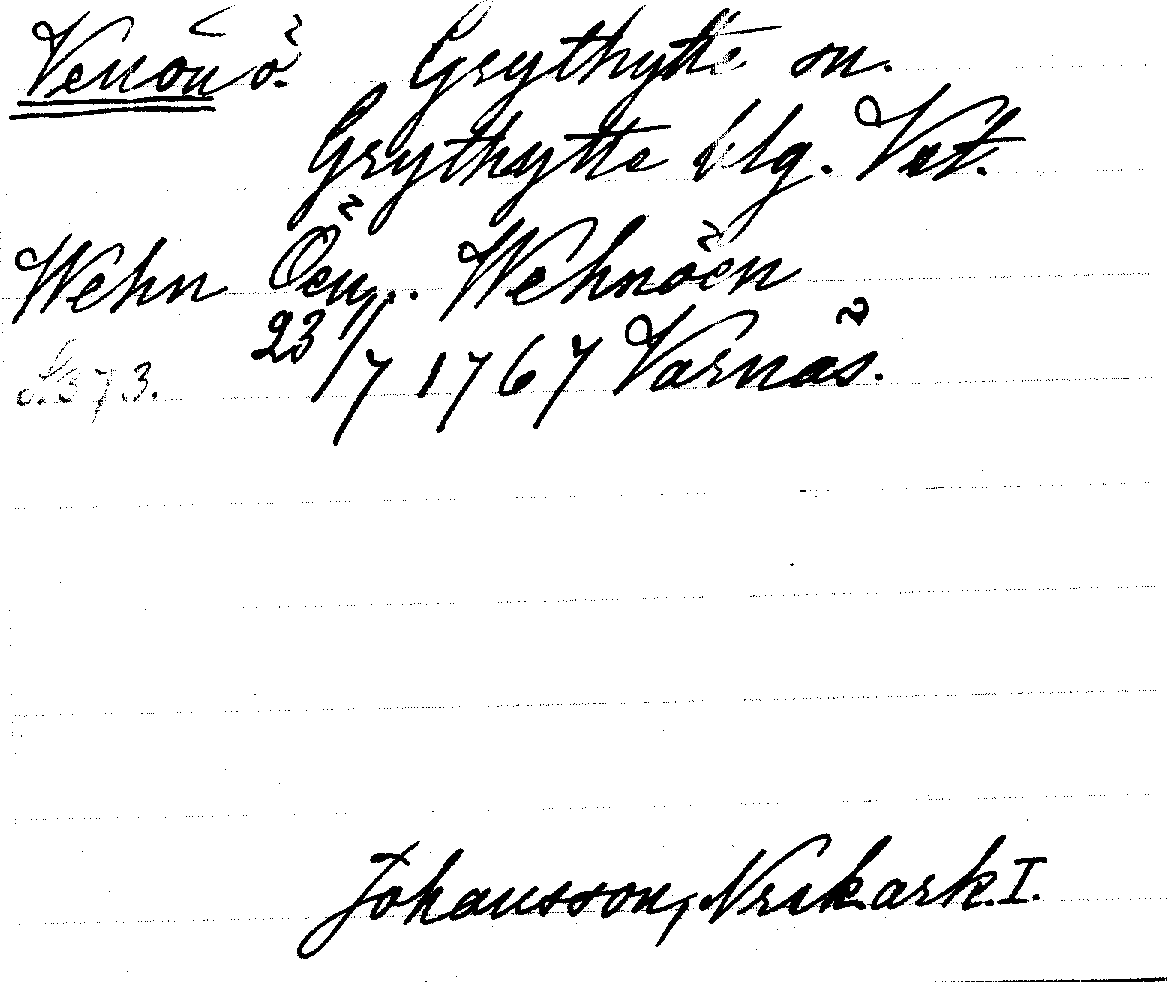 Venön ö. Grythytte sn.
Grythytte blg. Vst.
Wehn Öen, .. Wehnöen
23/7 1767 Varnäs.
S. 373.
Johansson, Nrikark I.